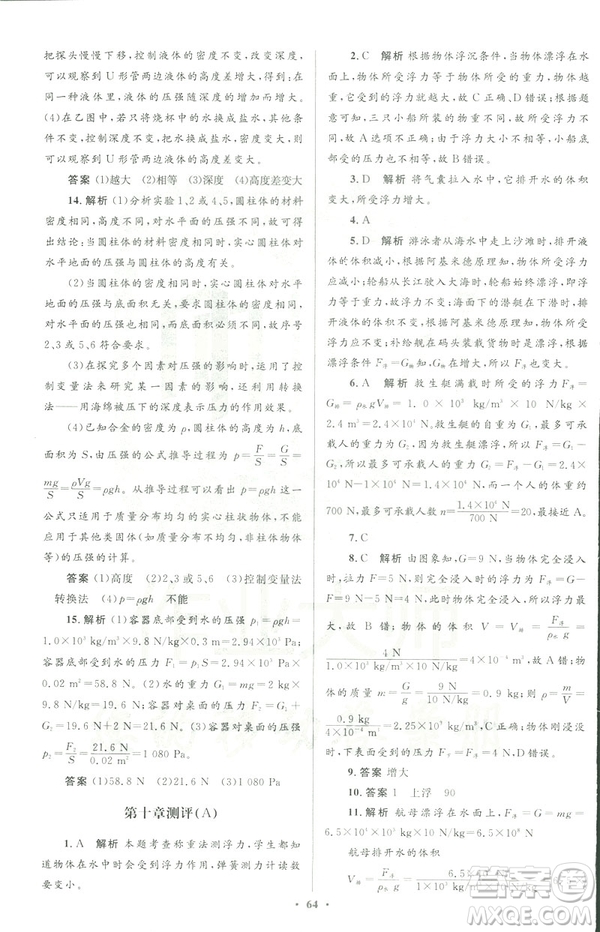 把探头慢慢下移,控制液体的密度不变,改变深度,
可以观察到 U 形管两边液体的高度差增大,即在
同一种液体中,液体的压强随深度的增加而增大。
(4)在乙图中,若将烧杯中的水换成盐水,其他条
件不变,控制深度不变,水换成盐水,密度变大,则
可以观察到 U 形管两边液体的高度差变大。
答案 (1)越大 (2)相等 (3)深度 (4)高度差变大
14. 解析 (1)分析实验 1、2 或 4、5,圆柱体的材料
密度相同,高度相同,对水平面的压强相同,故可得
出结论:当圆柱体的材料密度相同时,实心圆柱体对
水平地面的压强与高度有关。
(2)当圆柱体的材料密度相同时,实心圆柱体对水平
地面的压强与底面积无关,要求圆柱体的高度相同,
对水平面的压强相同,底面积不同,故序号
2、3 或 5、6 符合要求。
(3)在探究多个因素对压强的影响时,需要利用
控制变量法来研究某一因素的影响;利用转换
法——用海绵被压下的深度表示压力的作用效果。
(4)已知合金的密度为 ρ,圆柱体的高度为 h,底面
积为 S,由压强的公式推导过程为 p=F/S=G/S=
mg/S=ρVg/S=ρgh。从推导过程可以看出,这一
公式只适用于质量分布均匀的实心柱状物体,质
量分布不均匀或非柱状的实心物体不能用该公式
的压强的计算。
答案 (1)高度 (2)2、3 或 5、6 (3)控制变量法
转换法 (4)p=ρgh 不能
15. 解析 (1)容器底部受到水的压强 p₁=ρ水gh=
1.0×10³ kg/m³×9.8 N/kg×0.3 m=2 940 Pa;
容器底部受到水的压力 F₁=p₁S=2 940 Pa×
0.02 m²=58.8 N。(2)水的重力 G水=mg=2 kg×
9.8 N/kg=19.6 N;容器对桌面的压力 F₂=G水+
G容=19.6 N+2 N=21.6 N;容器对桌面的压强
p₂=F₂/S=21.6 N/0.02 m²=1 080 Pa。
答案 (1)58.8 N (2)1 080 Pa
第十章测评(A)
1. A 解析 本题考查称重法测浮力,学生都知
道物体在水中时会受到浮力作用,弹簧测力计读数
要变小。
2. C 解析 根据物体浮沉条件,物体漂浮在水
面上,物体所受浮力等于物体所受的重力,物体所
受重力越大,所受的浮力就越大,故 C 正确,D 错误;
由题意可知,三个小船所用橡皮泥的重力相
等,故 A 选项不正确;由浮力产生的原因可知,小船
底部受的压力相等,故 B 错误。
3. D 解析 将气囊拉入水中,气囊
下时,它排开水的体积
变大,浮力变大。
4. A
5. D 解析 游泳者从海水中走上沙滩时,排开液
体的体积减小,由阿基米德原理可知,所受浮力
应减小;轮船从长江驶入大海时,轮船始终漂浮,浮
力等于重力,浮力不变;海面下的潜艇在下潜时,排开
液体的体积不变,根据阿基米德原理知,所受浮力
不变;补给舰在码头装载货物时,重力变大,由
漂浮条件知,浮力变大。
6. A 解析 救生艇满载时受到的浮力 F浮=
G排=ρ水gV排=1.0×10³ kg/m³×10 N/kg×
2.4 m³=2.4×10⁴ N;救生艇自重和最多可承
载人的重力 G₂,由于救生艇漂浮,则最多可承
载人的重力 G₂=F浮-G₁=2.4×10⁴ N-
1×10⁴ N=1.4×10⁴ N;一个人的体重约
700 N,最多承载人数 n=1.4×10⁴ N/700 N=20,最接近 A。
7. C
8. C 解析 由图象知,G=9 N,当物体完全浸入
时,拉力 F=5 N,则 F浮=G-F=9 N-5 N=
4 N,物体完全浸入时,排开水的体积最大,所受浮力
最大,故 B 错误;物体的体积 V=V排=F浮/ρ水g=
4 N/(1.0×10³ kg/m³×10 N/kg)=4×10⁻⁴ m³,故 A 错误;物
体的质量 m=G/g=9 N/10 N/kg=0.9 kg,则 ρ=m/V=
0.9 kg/4×10⁻⁴ m³=2.25×10³ kg/m³,C 正确;物体浸没
下时受到的浮力不变,D 错误。
9. 答案 增大
10. 答案 1 上浮 90
11. 解析 航母漂浮在水面上,F浮=G=mg=
6.5×10⁷ kg×10 N/kg=6.5×10⁸ N
航母排开水的体积
V排=F浮/ρ水g=
64
答案圈
MXQE.COM